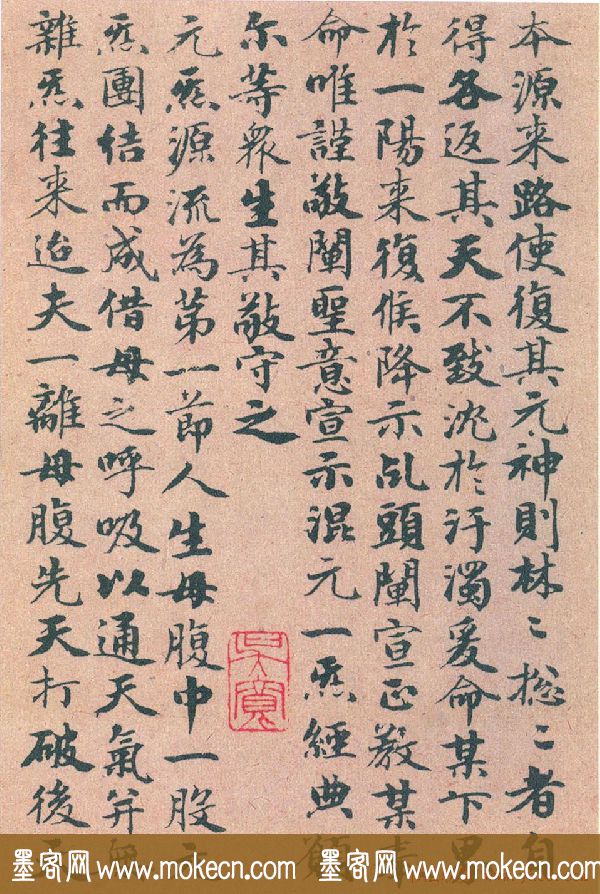 本源来路使復其元神則林〻捴〻者自
得各返其天不致沈於汙濁爰命某下界
於一陽来復候降示乩頭闡宣正教某
命唯謹敬闡聖意宣示混元一炁經典
尓等衆生其敬守之
元炁源流為第一節人生母腹中一股
炁團结而成借母之呼吸以通天氣并
雜炁往来迨夫一離母腹先天打破後
墨客网 www.mokecn.com 墨客网 www.mokecn.com